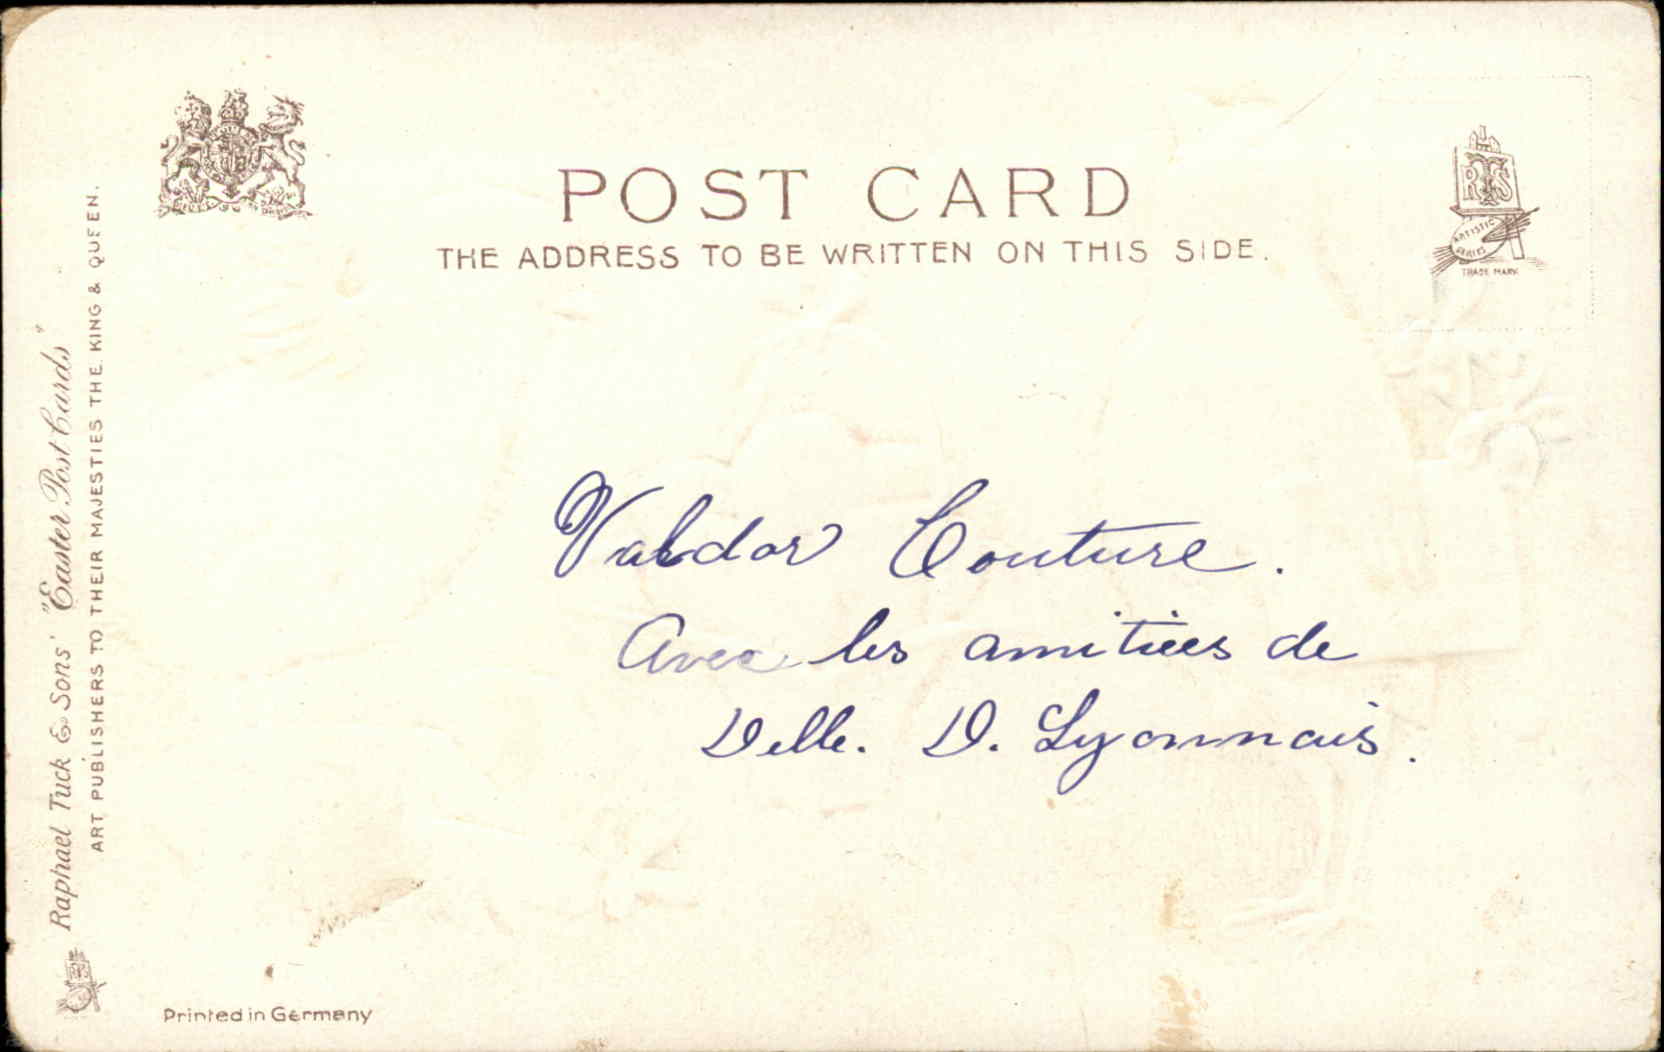 POST CARD
THE ADDRESS TO BE WRITTEN ON THIS SIDE.
RTS
ARTISTIC
SERIES
TRADE MARK
Valdor Couture.
Avec les amitiées de
Delle. D. Lyonnais.
Raphael Tuck & Sons' "Easter Post Cards"
ART PUBLISHERS TO THEIR MAJESTIES THE KING & QUEEN.
Printed in Germany